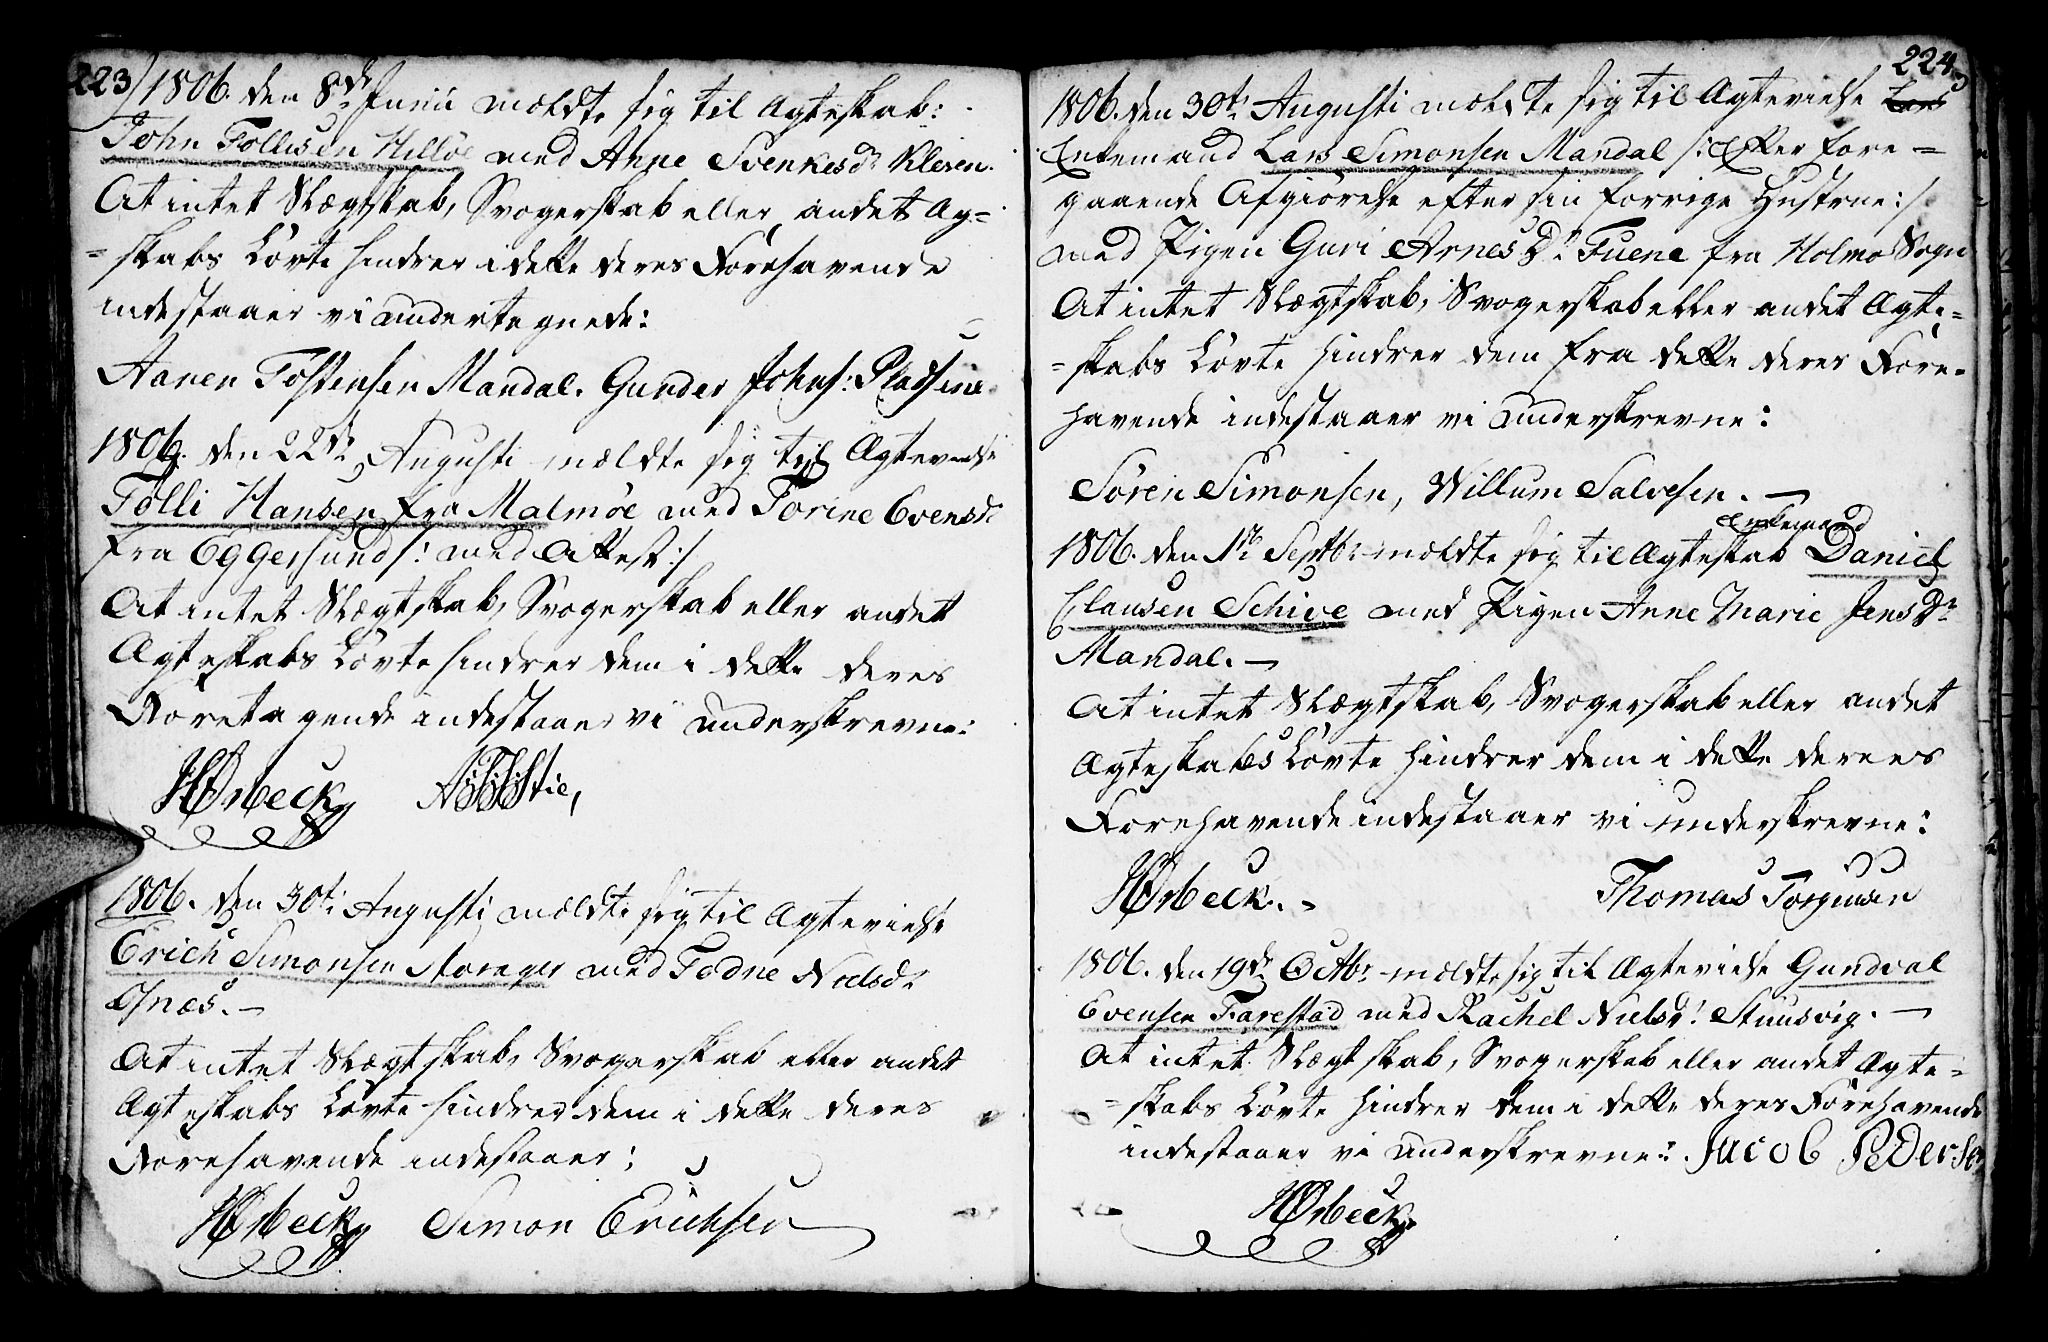 223)
1806. den 8de Junii mældte sig til Ægteskab:
John Tollisen Hilløe med Anne Svenkesdr Kleven.
At intet Slægtskab, Svogerskab eller andet Æg=
=skabs Løvte hindrer i dette deres Forehavende
indestaaer vi undertegnede:
Aanen Tostensen Mandal. Gunder Johns:
1806. den 22de Augusti mældte sig til Ægtevielse
Tolli Hansen fra Malmöe med Torine Evensdr
fra Eggersund /: med Attest :/
At intet Slægtskab, Svogerskab eller andet
Ægteskabs Løvte hindrer dem i dette deres
Foretagende indestaaer vi underskrevne:
HØrbeck
1806. den 30te Augusti mældte sig til Ægtevielse
Erich Simonsen Storager med Todne Nielsdr
Osnæs. —
At intet Slægtskab, Svogerskab eller andet
Ægteskabs Løvte hindrer dem i dette deres
Forehavende indestaaer:
HØrbeck Simon Erichsen
224
1806. den 30te Augusti mældte sig til Ægtevielse Lars
Enkemand Lars Simonsen Mandal /: efter fore=
gaaende Afgiørelse efter sin forrige Hustrue :/
med Pigen Guri Arnes Dr Fuene fra Holme Sogn
At intet Slægtskab, Svogerskab eller andet Ægte=
=skabs Løvte hindrer dem fra dette deres Fore=
havende indestaaer vi underskrevne:
Sören Simonsen, Willum Salvesen. —
Enkemand
1806. den 1te Septbr mældte sig til Ægteskab Daniel
Clausen Schive med Pigen Anne Marie Jens Dr
Mandal. —
At intet Slægtskab, Svogerskab eller andet
Ægteskabs Løvte hindrer dem i dette deres
Forehavende indestaaer vi underskrevne:
HØrbeck. Thomas Torgusen
1806. den 19de Octbr mældte sig til Ægtevielse Gundval
Evensen Farestad med Rachel Nielsdr Stuusvig. —
At intet Slægtskab, Svogerskab eller andet Ægte=
=skabs Løvte hindrer dem i dette deres Forehavende
indestaaer vi underskrevne: Jacob Pedersen
HØrbeck